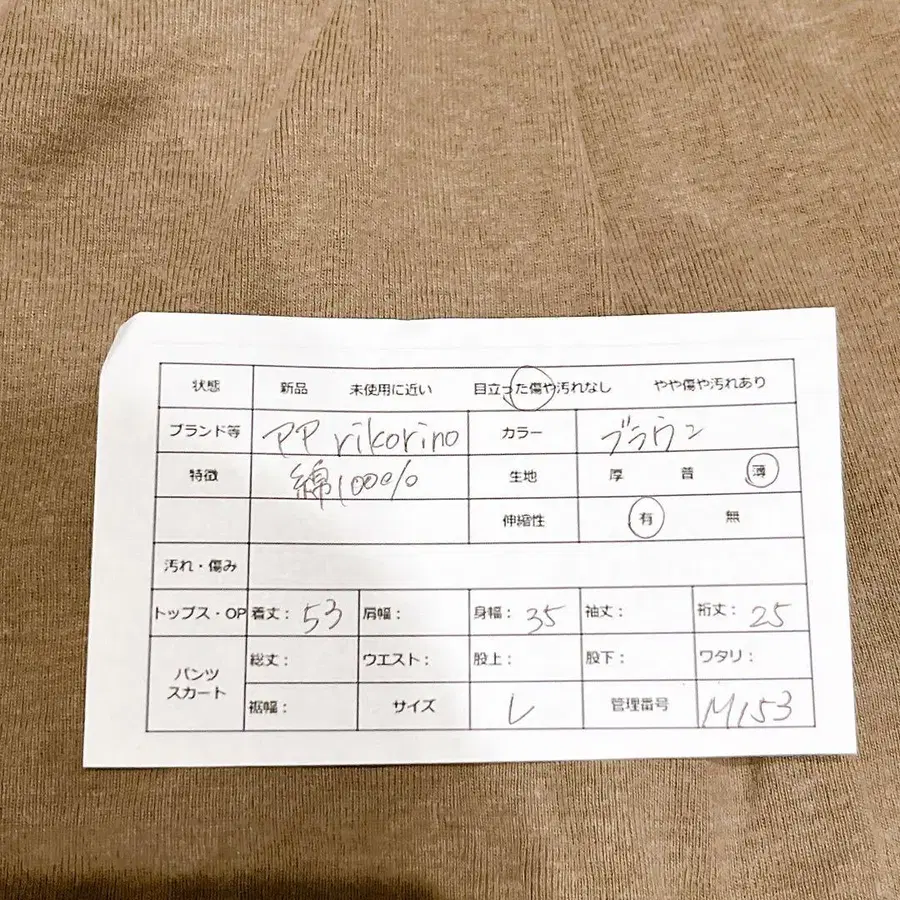 状態 新品 未使用に近い 目立った傷や汚れなし やや傷や汚れあり
ブランド等 rikorino カラー ブラウン
特徴 綿100% 生地 厚 普 薄
伸縮性 有 無
汚れ・傷み
トップス・OP 着丈: 53 肩幅: 身幅: 35 袖丈: 裄丈: 25
パンツ スカート 総丈: ウエスト: 股上: 股下: ワタリ:
裾幅: サイズ L 管理番号 M153